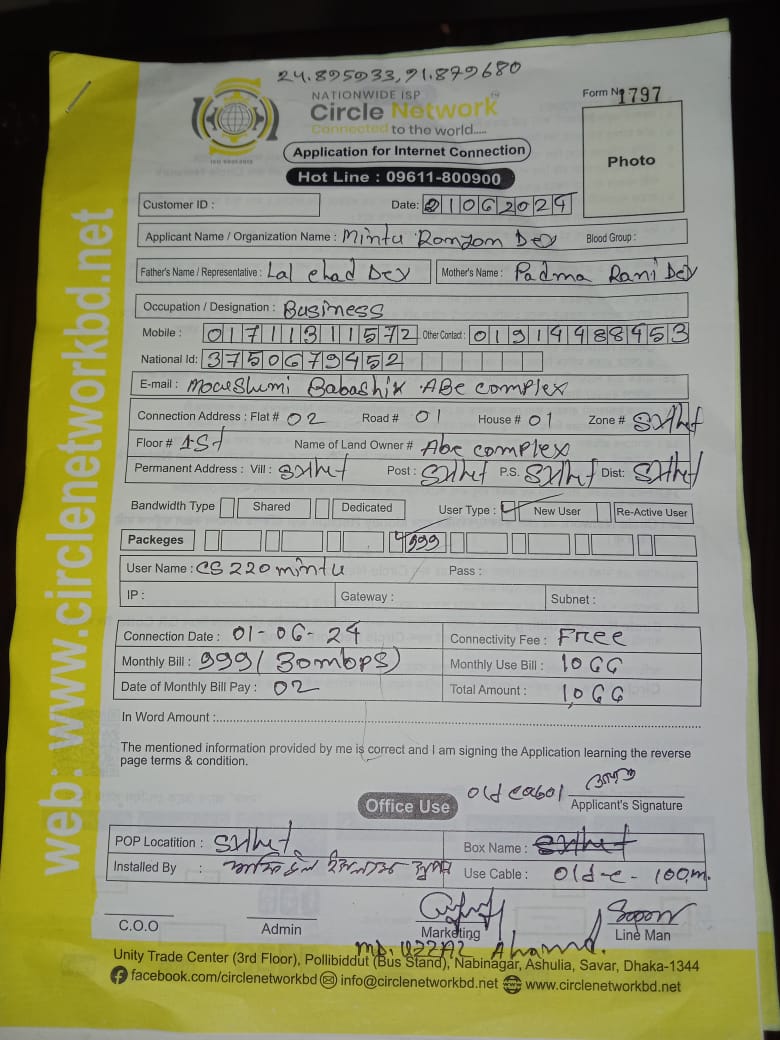 24.895033, 91.879680
NATIONWIDE ISP
Circle Network
Connected to the world.....
ISO 9001:2015
Form No 1797
Application for Internet Connection
Hot Line : 09611-800900
Photo
Customer ID :
Date: 01062024
Applicant Name / Organization Name : Mintu Ronjon Dey Blood Group :
Father's Name / Representative : Lal chad Dey Mother's Name : Padma Rani Dey
Occupation / Designation : Business
Mobile : 01711311572 Other Contact : 01914488453
National Id: 3750679452
E-mail : Moushumi Babashik ABC complex
Connection Address : Flat # 02 Road # 01 House # 01 Zone # Sylhet
Floor # 1st Name of Land Owner # Abc complex
Permanent Address : Vill : Sylhet Post : Sylhet P.S. Sylhet Dist: Sylhet
Bandwidth Type Shared Dedicated User Type : New User Re-Active User
Packeges 999
User Name : CS220mintu Pass :
IP : Gateway : Subnet :
Connection Date : 01-06-24 Connectivity Fee : Free
Monthly Bill : 999 (30mbps) Monthly Use Bill : 1066
Date of Monthly Bill Pay : 02 Total Amount : 1,066
In Word Amount :
The mentioned information provided by me is correct and I am signing the Application learning the reverse
page terms & condition.
Old cabol
Office Use Applicant's Signature
POP Locatition : Sylhet Box Name : Sylhet
Installed By : Use Cable : Old-c- 100m.
C.O.O Admin Marketing Line Man
Md. Uzzal Ahamd.
Unity Trade Center (3rd Floor), Pollibiddut (Bus Stand), Nabinagar, Ashulia, Savar, Dhaka-1344
facebook.com/circlenetworkbd info@circlenetworkbd.net www.circlenetworkbd.net
web: www.circlenetworkbd.net